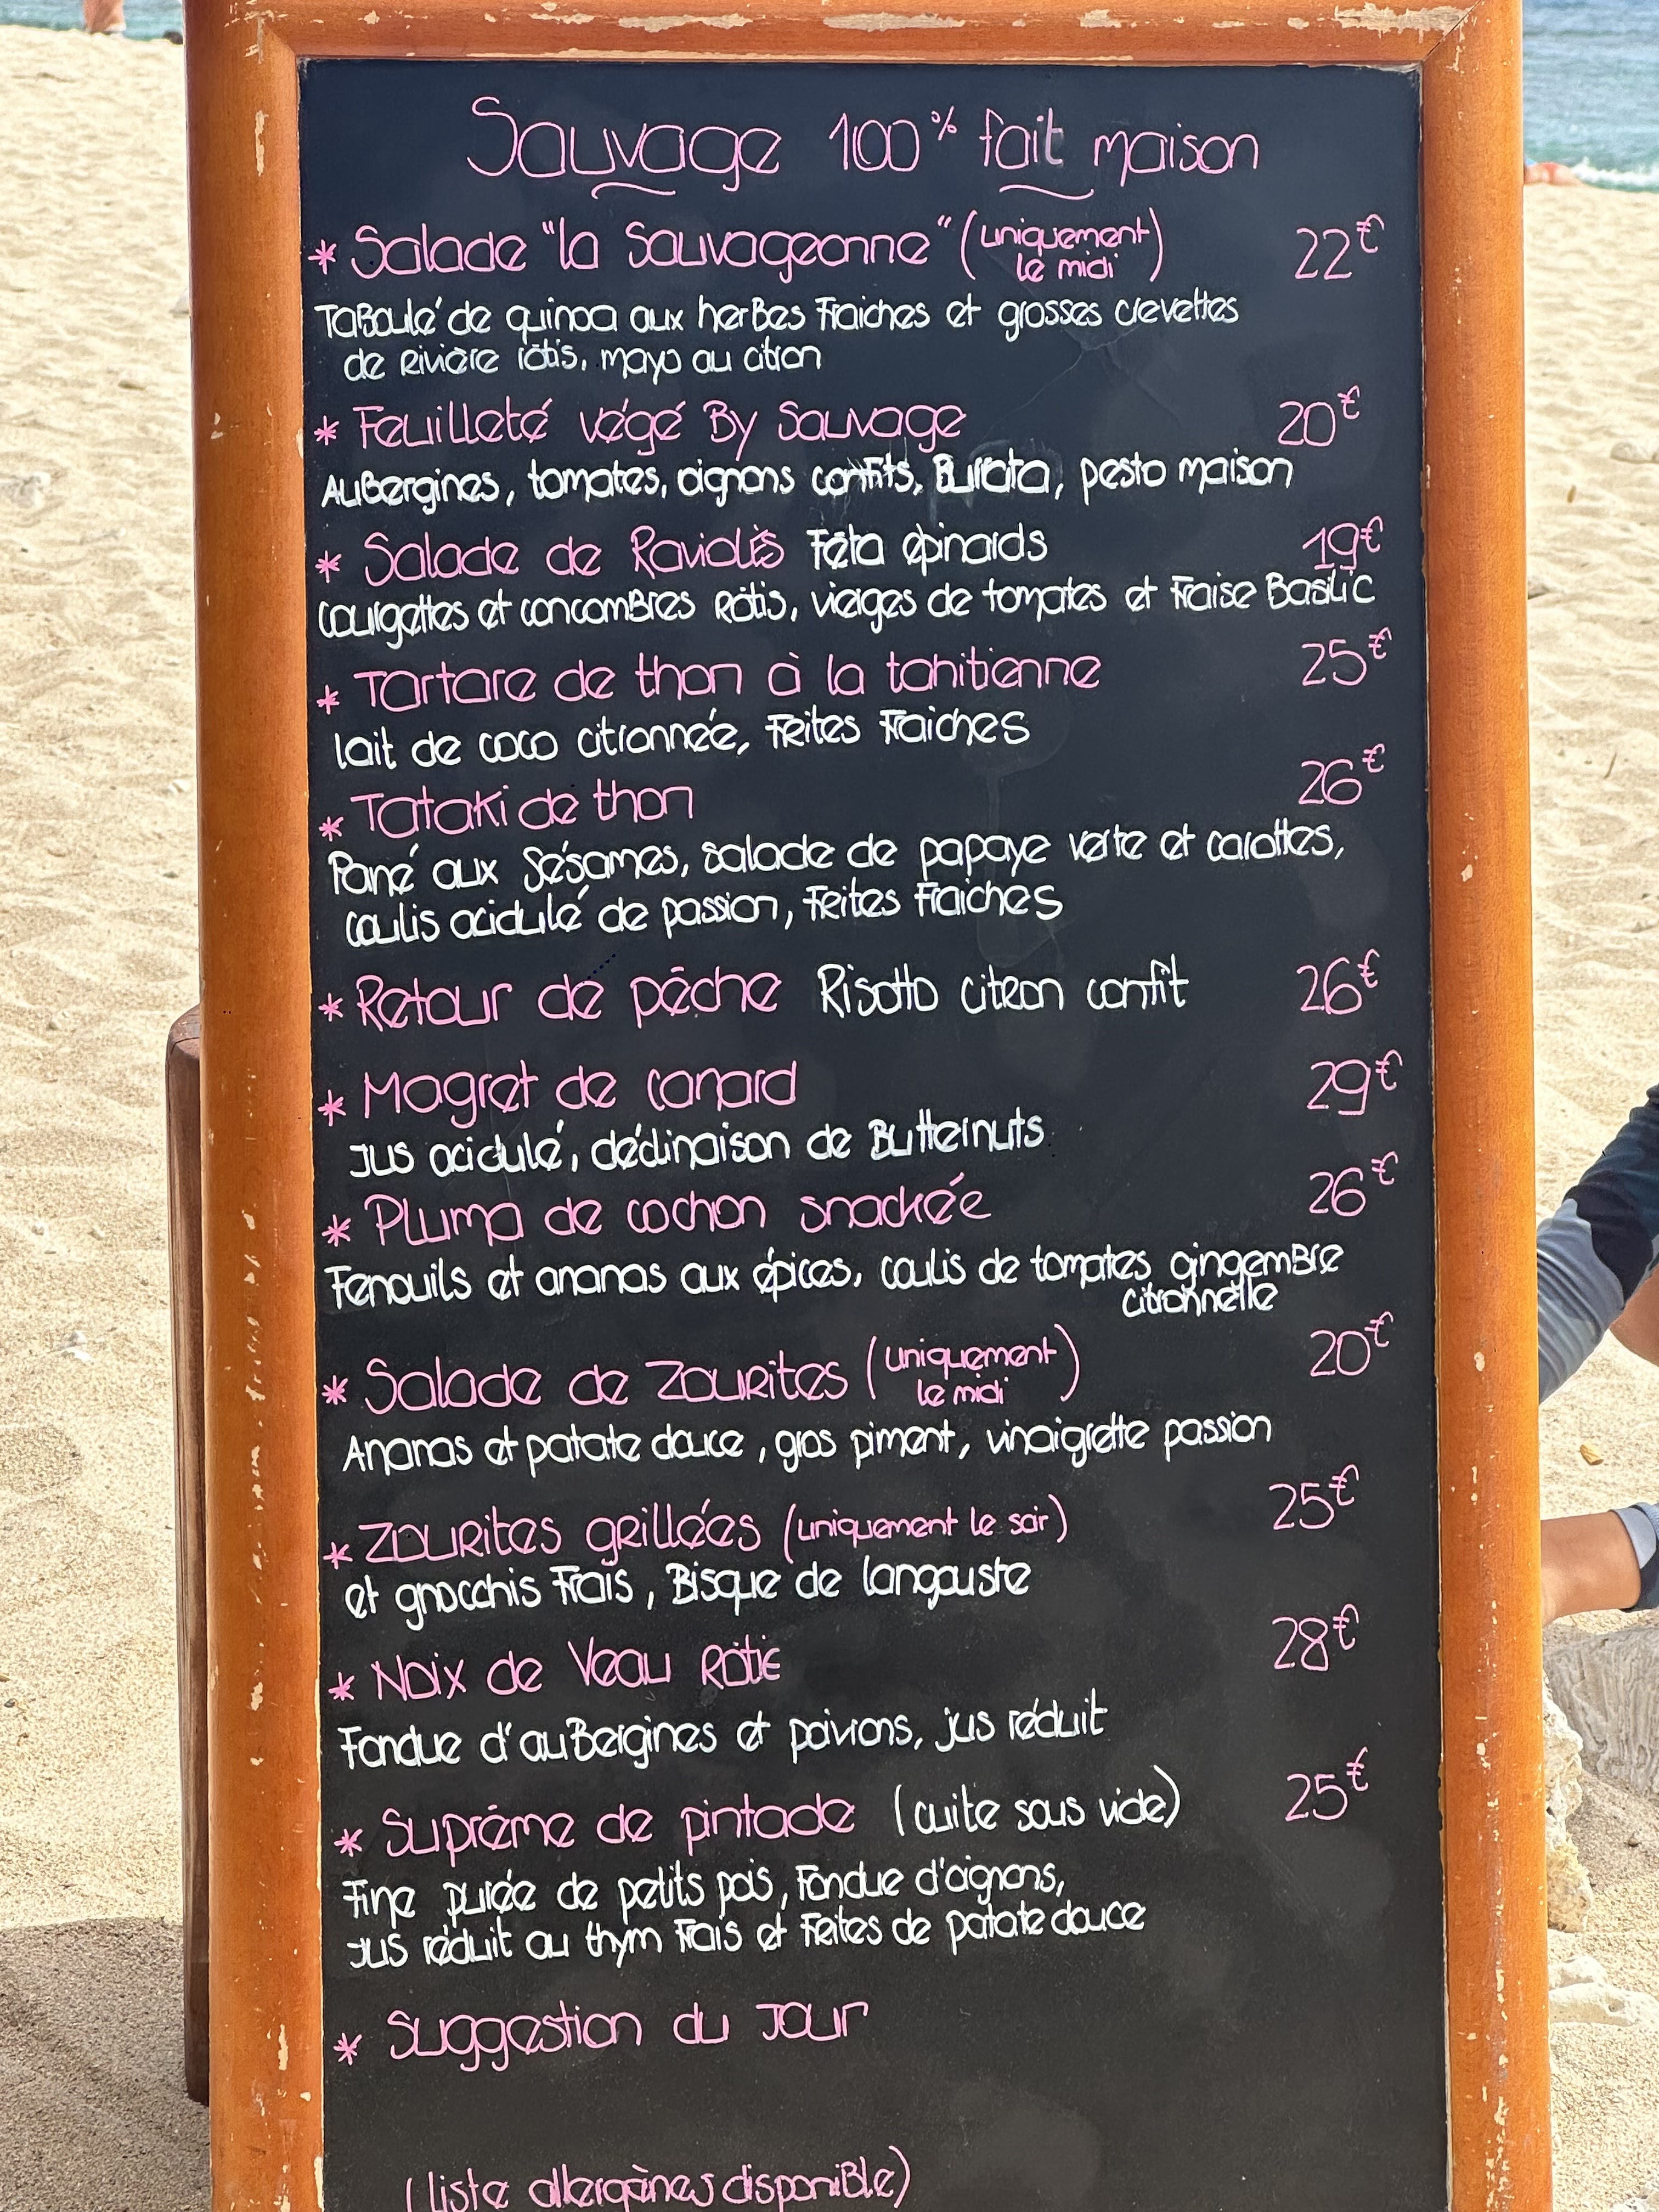 Sauvage 100% fait maison
* Salade "la Sauvageonne" (uniquement le midi) 22€
Taboulé de quinoa aux herbes fraiches et grosses crevettes
de rivière rôtis, mayo au citron
* Feuilleté végé By Sauvage 20€
Aubergines, tomates, oignons confits, Burrata, pesto maison
* Salade de Raviolis Féta épinards 19€
courgettes et concombres rôtis, vierges de tomates et fraise Basilic
* Tartare de thon à la tahitienne 25€
lait de coco citronnée, frites fraiches
* Tataki de thon 26€
Pané aux Sésames, salade de papaye verte et carottes,
coulis acidulé de passion, frites fraiches
* Retour de pêche Risotto citron confit 26€
* Magret de canard 29€
jus acidulé, déclinaison de Butternuts
* Pluma de cochon snackée 26€
Fenouils et ananas aux épices, coulis de tomates gingembre
citronnelle
* Salade de Zourites (uniquement le midi) 20€
Ananas et patate douce, gros piment, vinaigrette passion
* Zourites grillées (uniquement le soir) 25€
et gnocchis frais, Bisque de langouste
* Noix de Veau Rôtie 28€
Fondue d'aubergines et poivrons, jus réduit
* Suprême de pintade (cuite sous vide) 25€
Fine purée de petits pois, fondue d'oignons,
jus réduit au thym frais et frites de patate douce
* Suggestion du Jour
(liste allergènes disponible)